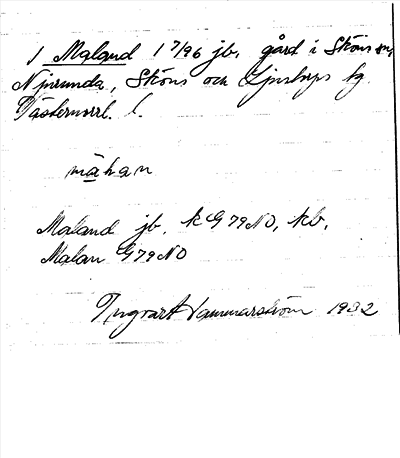 1 Maland 1 7/96 jb, gård i Sköns sn,
Njurunda, Sköns och Ljustorps tg.
Västernorrl. l.
màhan
Maland jb, KG79NO, kb,
Malan G79NO
Ingvart Hammarström 1932